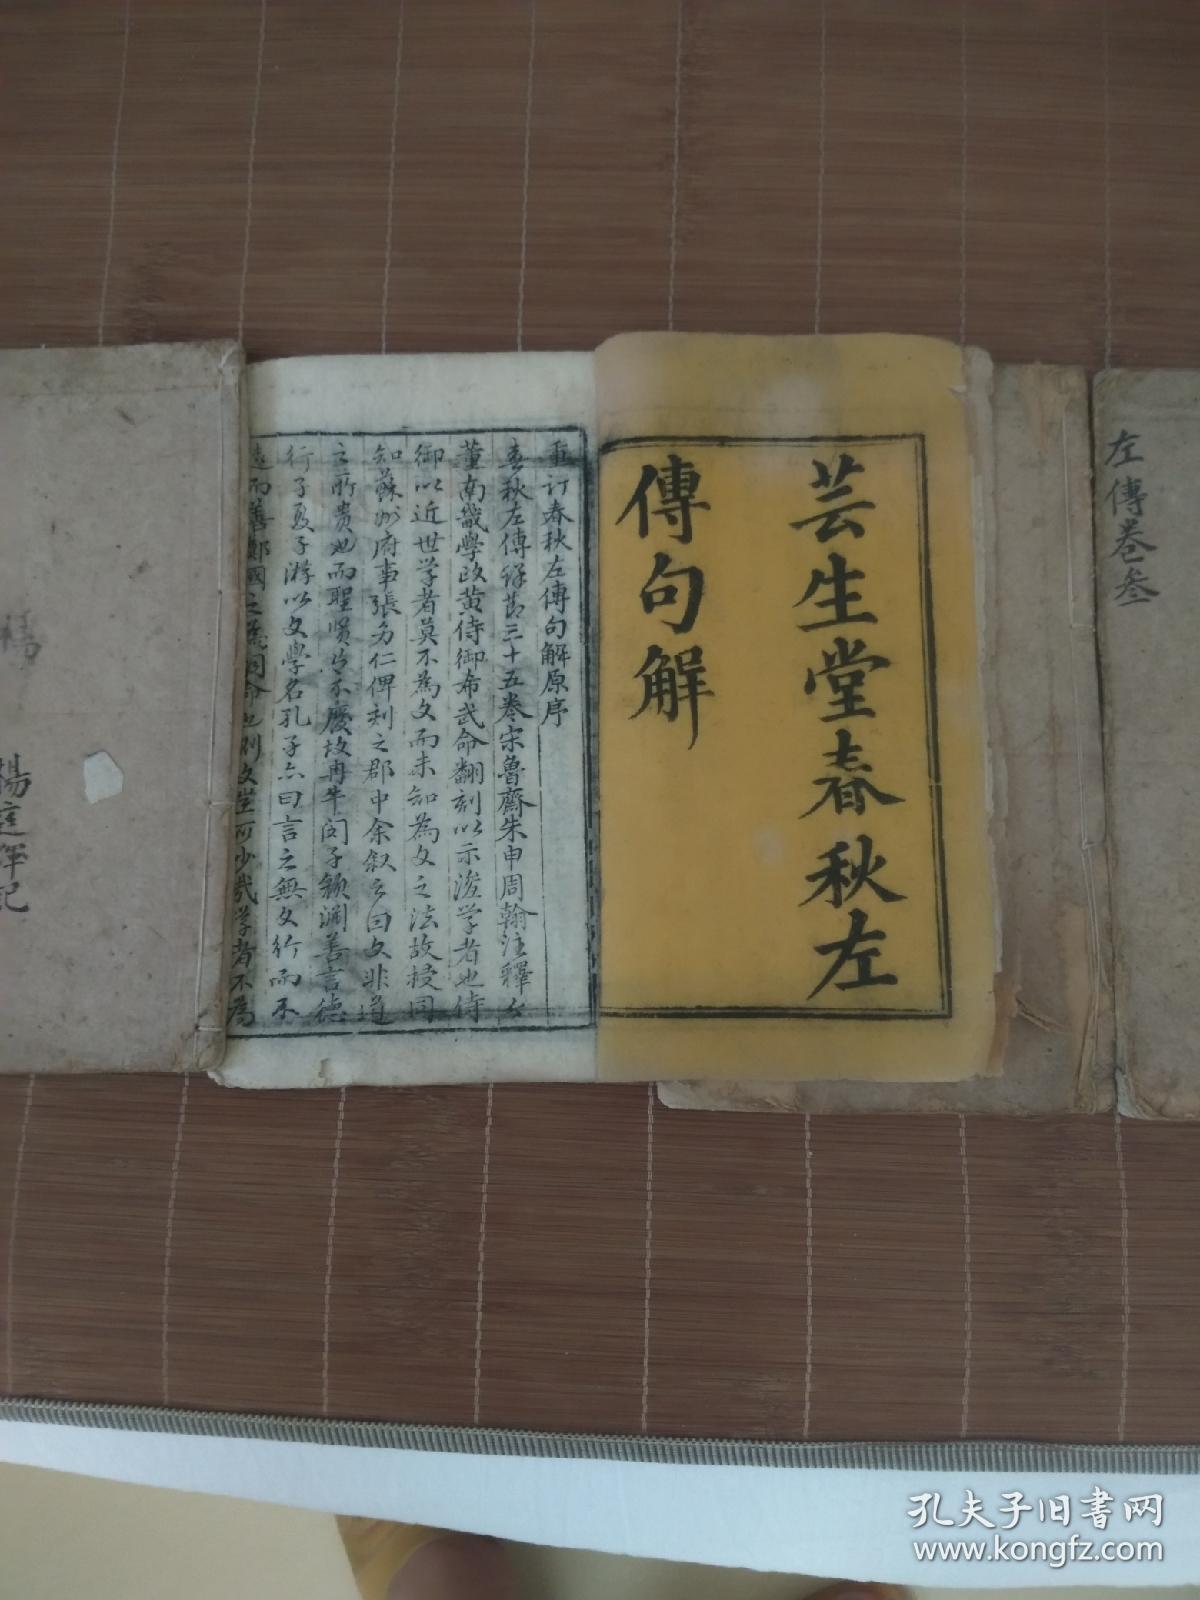 左傳卷叁
芸生堂春秋左
傳句解
重订春秋左傳句解原序
春秋左傳詳節三十五卷宋魯齋朱申周翰注釋今
董南畿學政黄侍御希武命翻刻以示後学者也侍
御以近世学者莫不為文而未知為文之法故授同
知蘇州府事張多仁俾刻之郡中余叙之曰文非道
之所贵也而聖贤不廢故冉牛闵子颜渊善言德
行子夏子游以文學名孔子亦曰言之無文行而不
遠而善鄭國之為命也則文豈可少哉学者不為
楊廷準记
孔夫子旧书网
www.kongfz.com